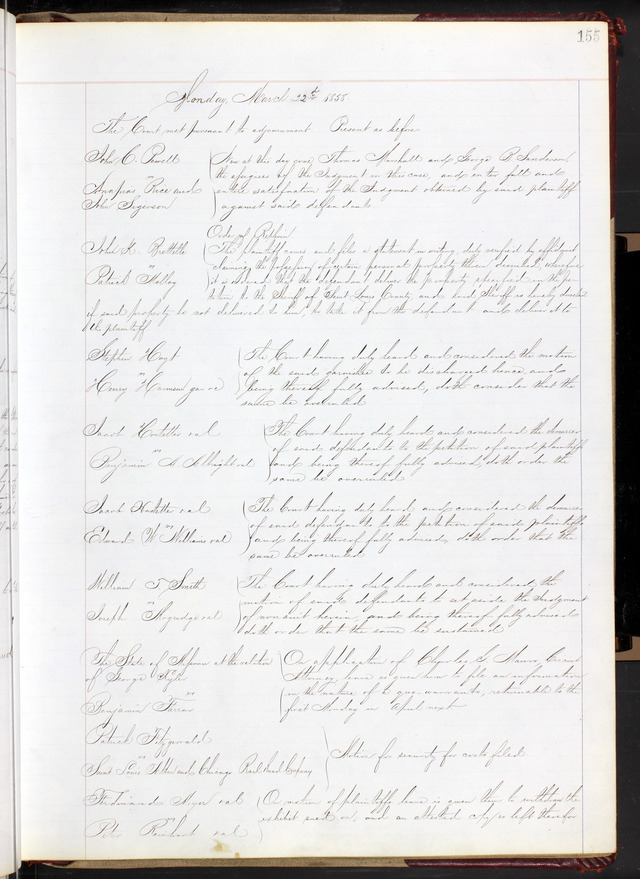 155
Monday, March 22d 1858
The Court met pursuant to adjournment Present as before
John C. Powell
vs
Ananias Rice and
John Sigerson
Now at this day come Thomas Marshall and George P. Sanderson
the assignees of the Judgment in this case, and enter full and
entire satisfaction of the Judgment obtained by said plaintiff
against said defendants
Order of Replevin
John H.
vs
Patrick Malloy
The plaintiff comes and files a statement in writing duly verified by affidavit
claiming the possession of certain personal property therein described, wherefore
it is ordered that the defendant deliver the property specified in the pe
tition to the Sheriff of Saint Louis County, and said Sheriff is hereby directed
if said property be not delivered to him, to take it from the defendant and deliver it to
the plaintiff
Stephen Hoyt
vs
Henry garnee
The Court having duly heard and considered the motion
of the said garnishee to be discharged hence, and
being thereof fully advised, doth consider that the
same be overruled
Jacob et al
vs
Benjamin A Albright et al
The Court having duly heard and considered the demurrer
of said defendants to the petition of said plaintiffs
and being thereof fully advised, doth order the
same be overruled
Jacob et al
vs
Edward W Williams et al
The Court having duly heard and considered the demurrer
of said defendants to the petition of said plaintiffs
and being thereof fully advised, doth order that the
same be overruled
William T Smith
vs
Joseph et al
The Court having duly heard and considered the
motion of said defendants to set aside the Judgment
of nonsuit herein, and being thereof fully advised
doth order that the same be sustained
The State of Missouri at the relation
of George Kyler
vs
Benjamin
On application of Charles G. Mauro Circuit
Attorney, leave is given him to file an information
in the nature of a quo warranto, returnable to the
first Monday in April next
Patrick Fitzgerald
vs
Saint Louis Alton and Chicago Rail Road Company
Motion for security for costs filed
Ferdinand Myer et al
vs
Peter et al
On motion of plaintiffs leave is given them to withdraw the
exhibit sued on, and an attested copy is left therefor